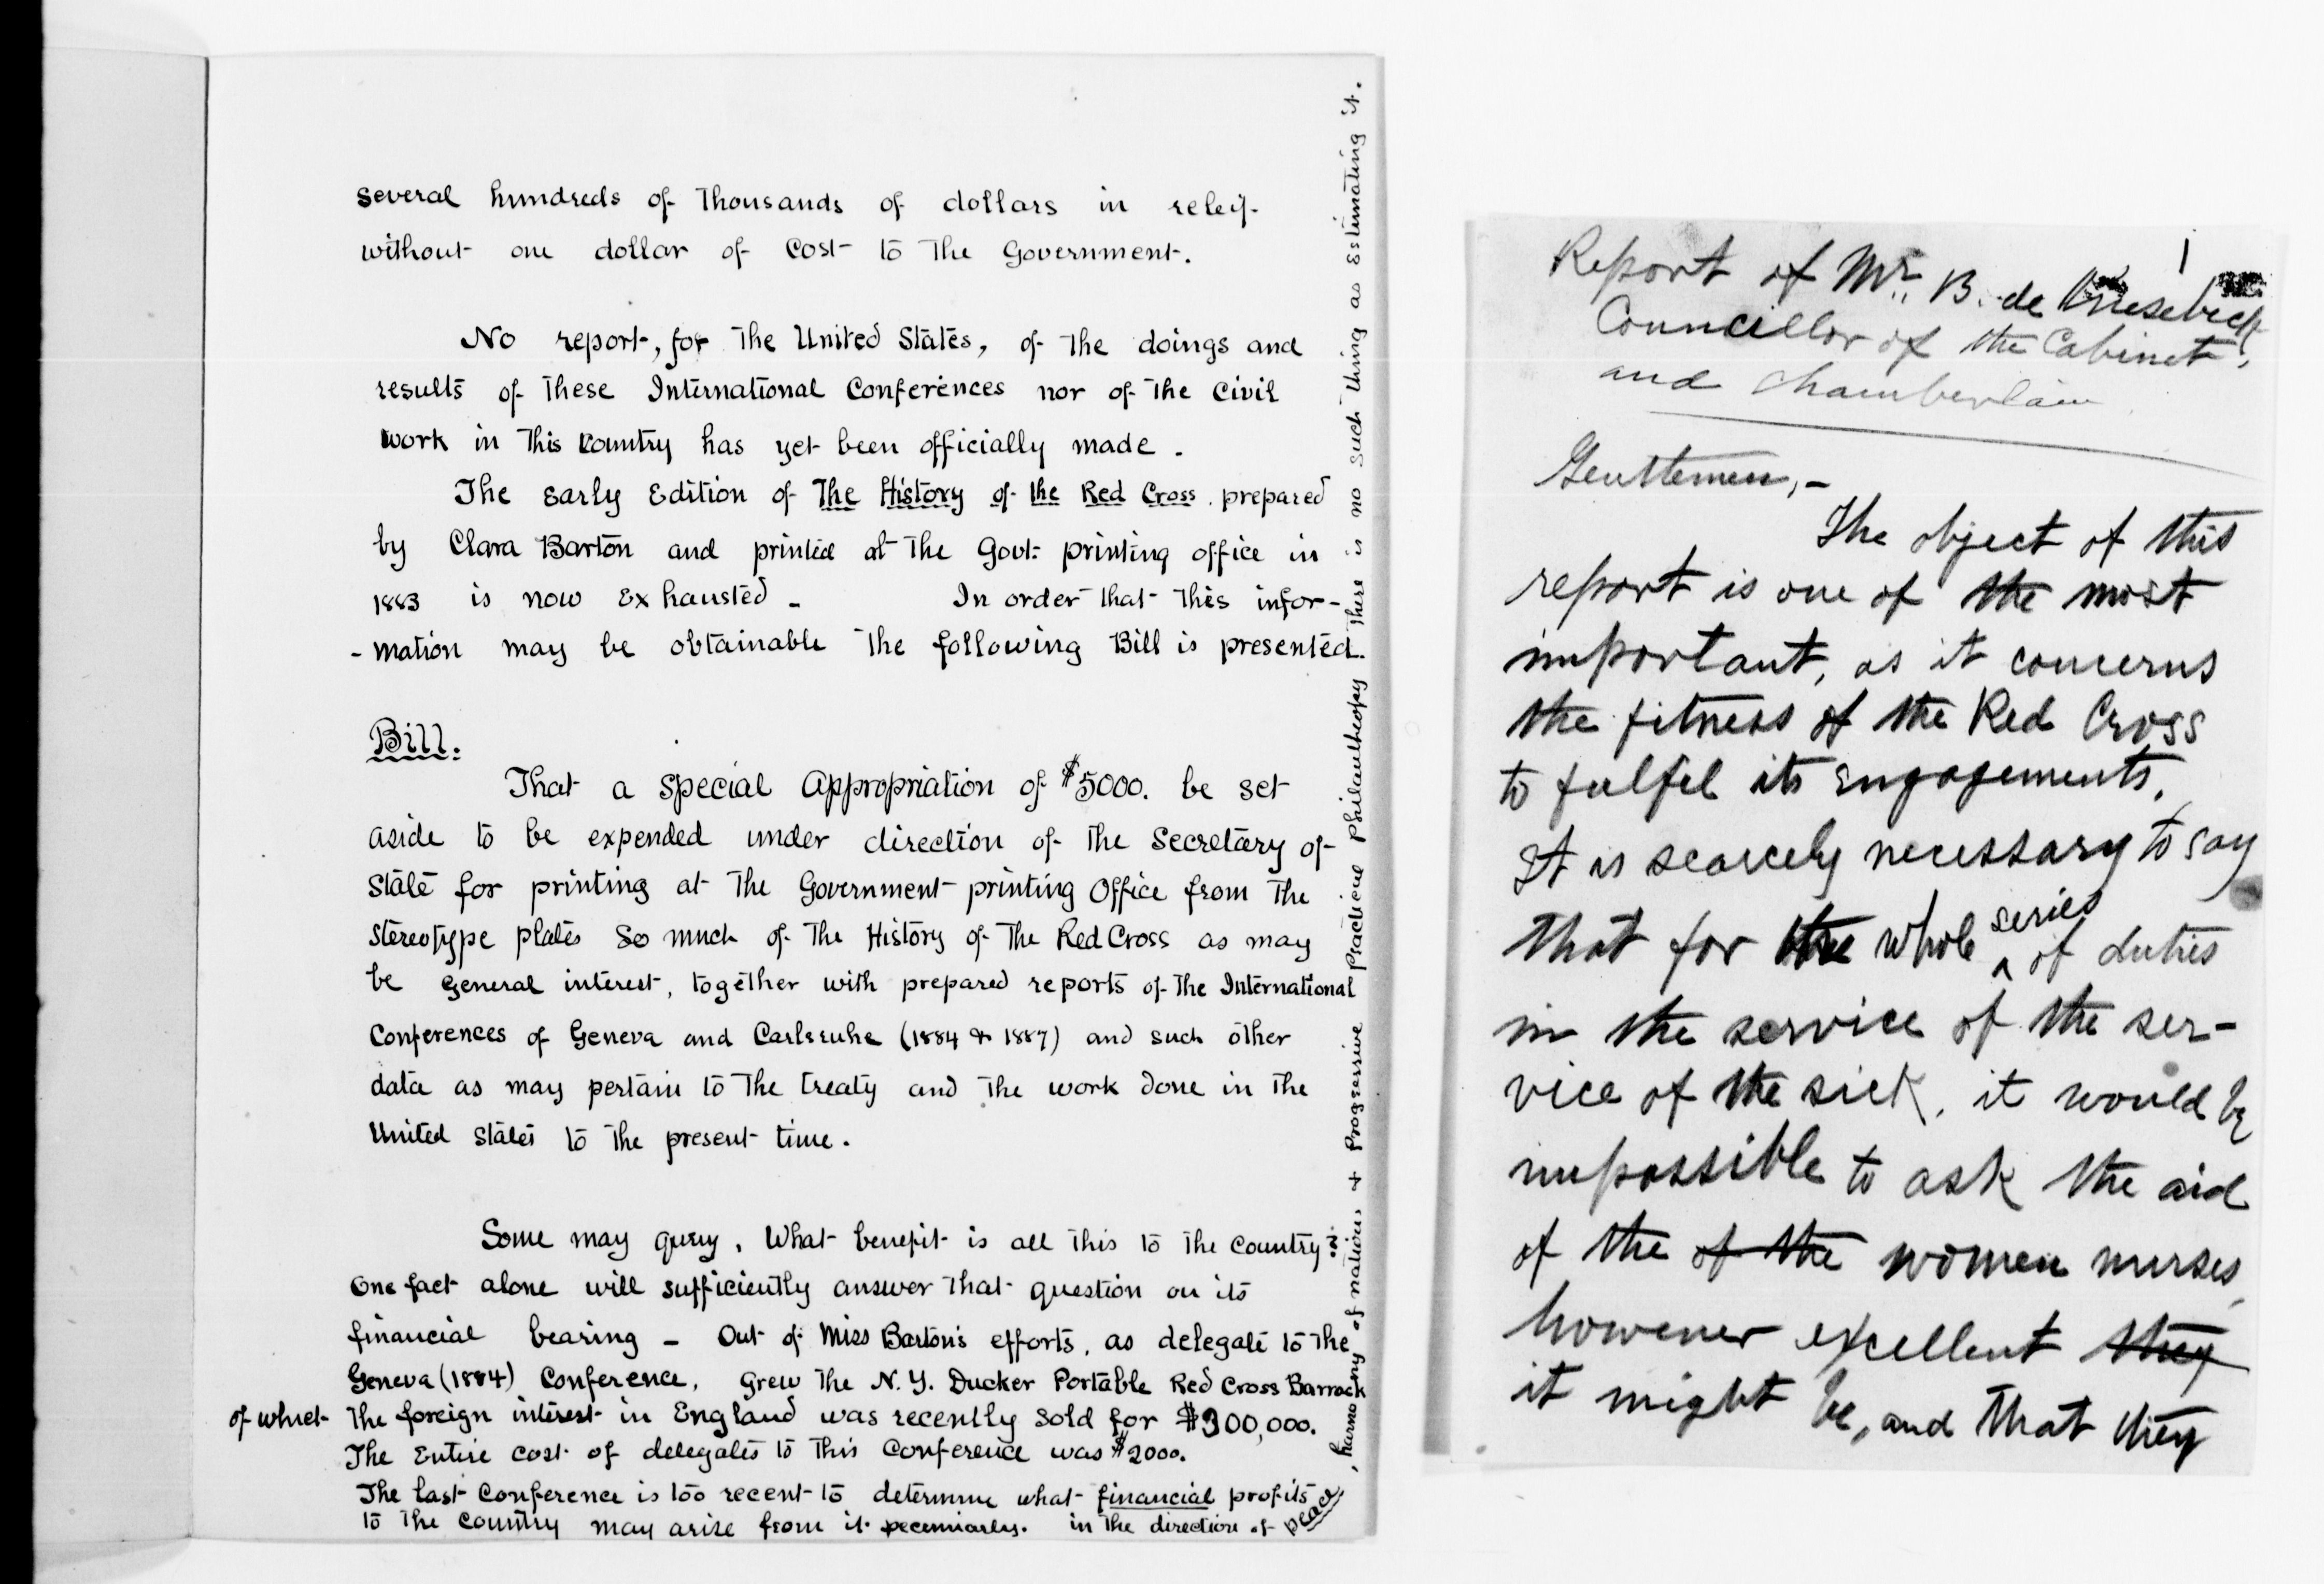 several hundreds of thousands of dollars in releif
without one dollar of cost to the Government.
No report, for the United States, of the doings and
results of these International Conferences nor of the civil
work in this country has yet been officially made.
The Early Edition of The History of the Red Cross. prepared
by Clara Barton and printed at the Govt: printing office in
1883 is now exhausted - In order that this infor-
-mation may be obtainable the following Bill is presented.
Bill.
That a special Appropriation of $5000. be set
aside to be expended under direction of the Secretary of
State for printing at the Government printing Office from the
stereotype plates so much of the History of the Red Cross as may
be general interest, together with prepared reports of the International
Conferences of Geneva and Carlsruhe (1884 & 1887) and such other
data as may pertain to the treaty and the work done in the
United States to the present time.
Some may query, What benefit is all this to the country?
One fact alone will sufficiently answer that question on its
financial bearing - Out of Miss Barton's efforts, as delegate to the
Geneva (1884) Conference, grew the N.Y. Ducker Portable Red Cross Barrack
of which the foreign interest in England was recently sold for $300,000.
The Entire cost of delegates to this Conference was $2000.
The last Conference is too recent to determine what financial profits
to the country may arise from it pecuniarly. in the direction of peace
, harmony of nations & Progressive Practical Philanthophy There is no such thing as Estimating it.
1
Report of Mr. B. de
Councillor of the Cabinet,
and Chamberlain
Gentlemen,-
The object of this
report is one of the most
important, as it concerns
the fitness of the Red Cross
to fulfel its engagements.
It is scarcely necessary to say
that for the whole series of duties
in the service of the ser-
vice of the sick, it would be
impossible to ask the aid
of the of the women nurses,
however excellent they
it might be, and that they